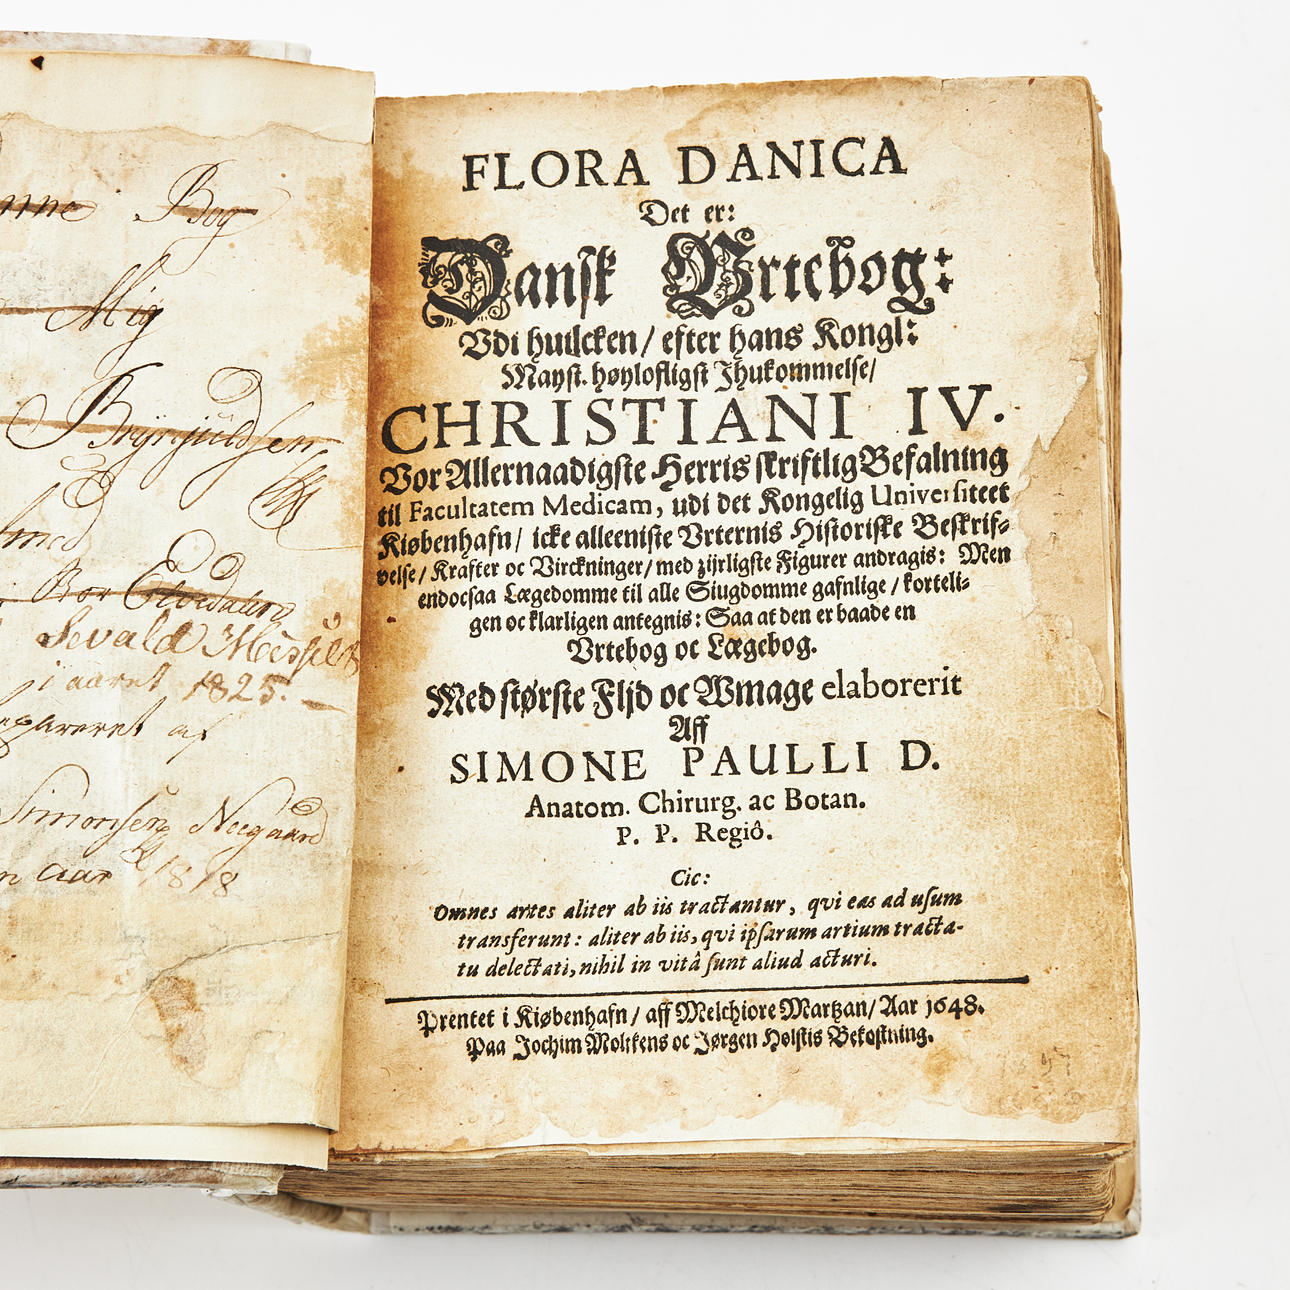 Bog
Mig
Brynjuldsen
Boe
Sevald
i aaret 1825.
af
Simonsen Neegaard
aar 1818
FLORA DANICA
Det er:
Dansk Vrtebog:
Vdi huilcken / efter hans Kongl:
Mayst. høylofligst Jhukommelse/
CHRISTIANI IV.
Vor Allernaadigste Herris skriftlig Befalning
til Facultatem Medicam, udi det Kongelig Universiteet
Kiøbenhafn / icke alleeniste Vrternis Historiske Beskrif-
velse / Krafter oc Virckninger / med zijrligste Figurer andragis: Men
endocsaa Lægedomme til alle Siugdomme gafnlige / korteli-
gen oc klarligen antegnis: Saa at den er baade en
Vrtebog oc Lægebog.
Med største Fljd oc Wmage elaborerit
Aff
SIMONE PAULLI D.
Anatom. Chirurg. ac Botan.
P. P. Regiô.
Cic:
Omnes artes aliter ab iis tractantur, qvi eas ad usum
transferunt: aliter ab iis, qvi ipsarum artium tracta-
tu delectati, nihil in vitâ sunt aliud acturi.
Prentet i Kiøbenhafn / aff Melchiore Martzan / Aar 1648.
Paa Jochim Moltkens oc Jørgen Holstis Bekostning.